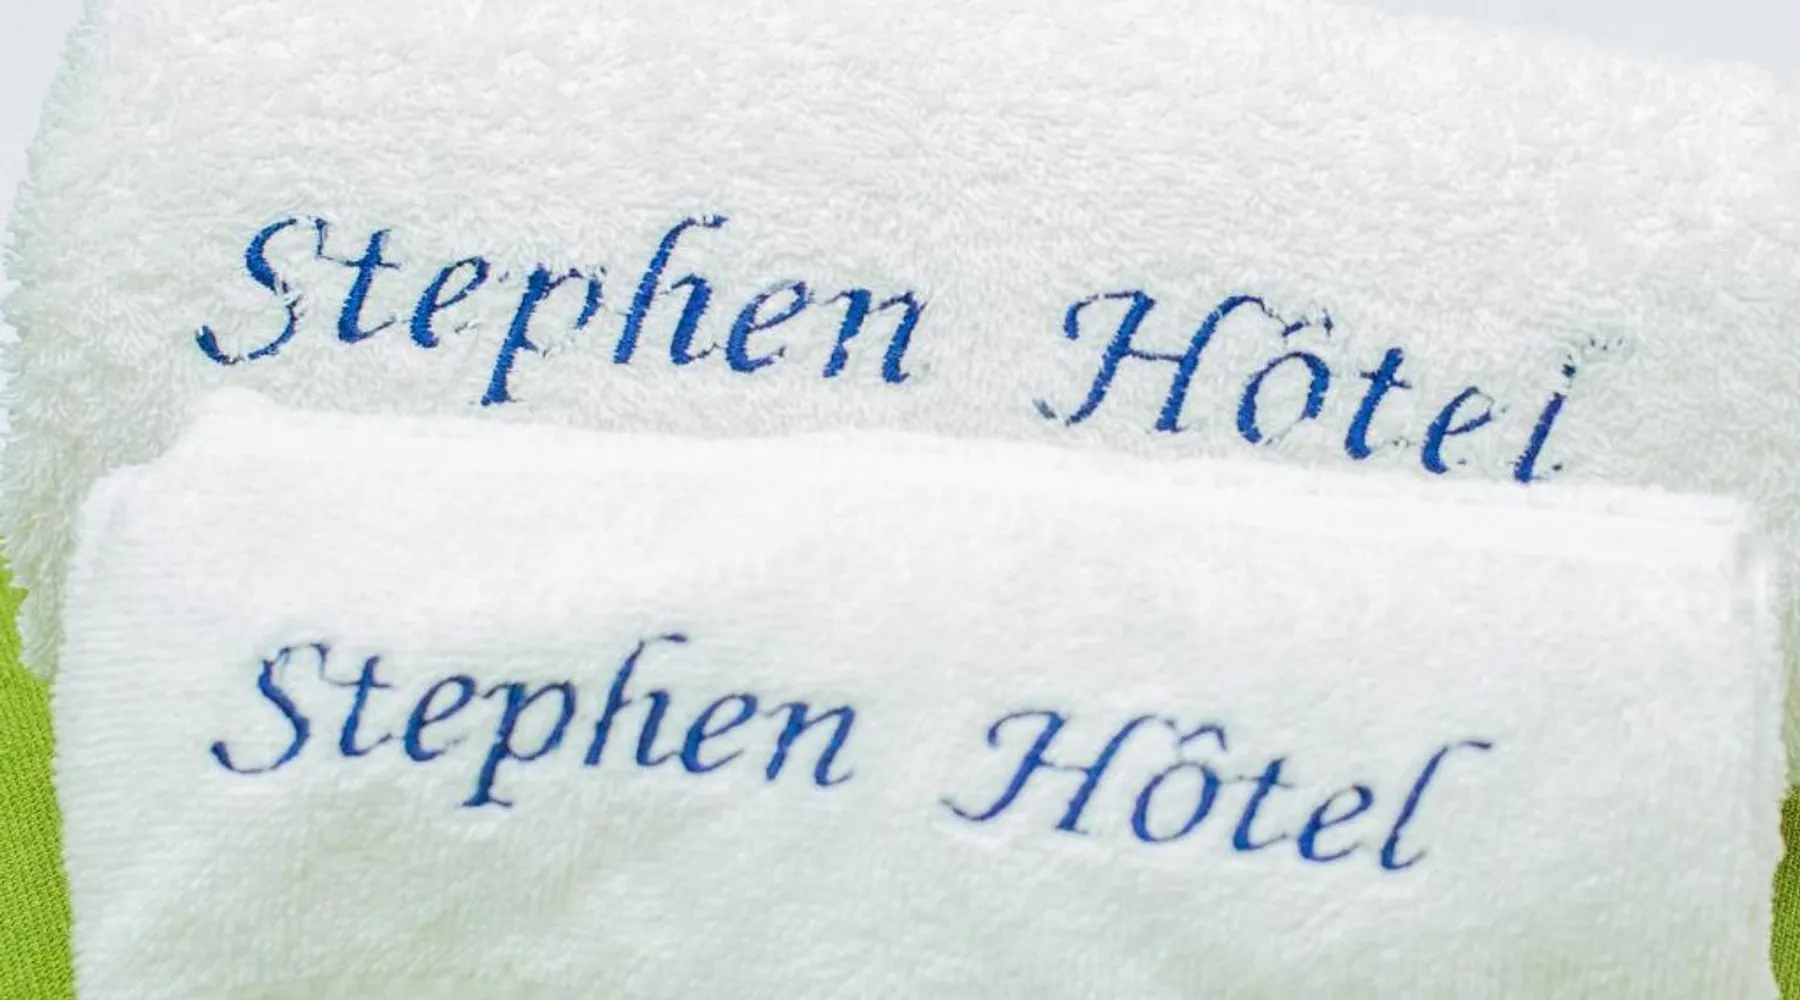 Stephen Hôtel
Stephen Hôtel